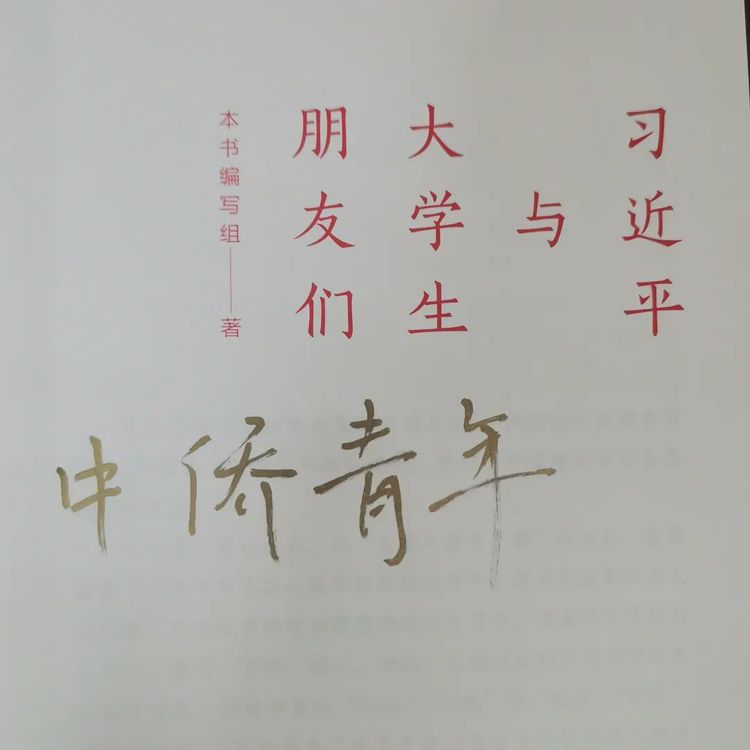 习近平
与
大学生
朋友们
本书编写组——著
中侨青年